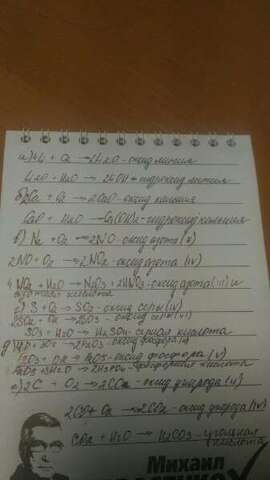 а) 4Li + O₂ → 2Li₂O - оксид лития
Li₂O + H₂O → 2LiOH - гидроксид лития
б) 2Ca + O₂ → 2CaO - оксид кальция
CaO + H₂O → Ca(OH)₂ - гидроксид кальция
в) N₂ + O₂ → 2NO - оксид азота (II)
2NO + O₂ → 2NO₂ - оксид азота (IV)
NO₂ + H₂O → оксид азота (III) и
азотная кислота
г) S + O₂ → SO₂ - оксид серы (IV)
2SO₂ + O₂ → 2SO₃ - оксид серы (VI)
SO₃ + H₂O → H₂SO₄ - серная кислота
д) оксид фосфора
оксид фосфора (V)
фосфорная кислота
е) 2C + O₂ → 2CO - оксид углерода (II)
2CO + O₂ → 2CO₂ - оксид углерода (IV)
CO₂ + H₂O → H₂CO₃ - угольная
кислота
Михаил